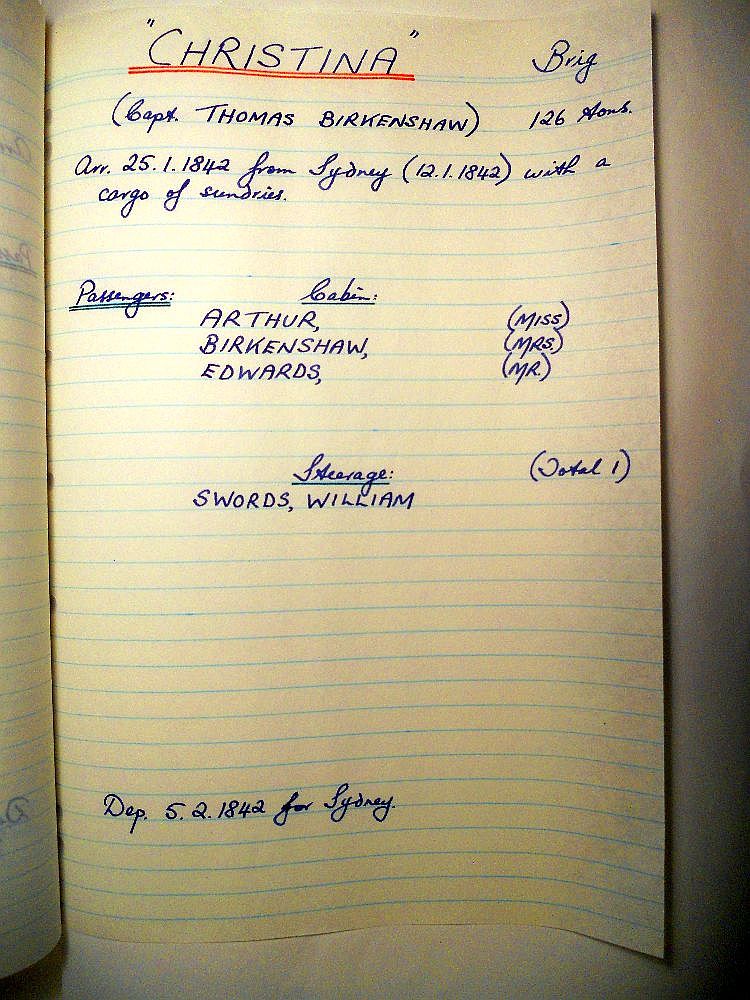 "CHRISTINA" Brig
(Capt. THOMAS BIRKENSHAW) 126 tons.
Arr. 25.1.1842 from Sydney (12.1.1842) with a
cargo of sundries.
Passengers: Cabin:
ARTHUR, (MISS)
BIRKENSHAW, (MRS.)
EDWARDS, (MR.)
Steerage: (Total 1)
SWORDS, WILLIAM
Dep. 5.2.1842 for Sydney.